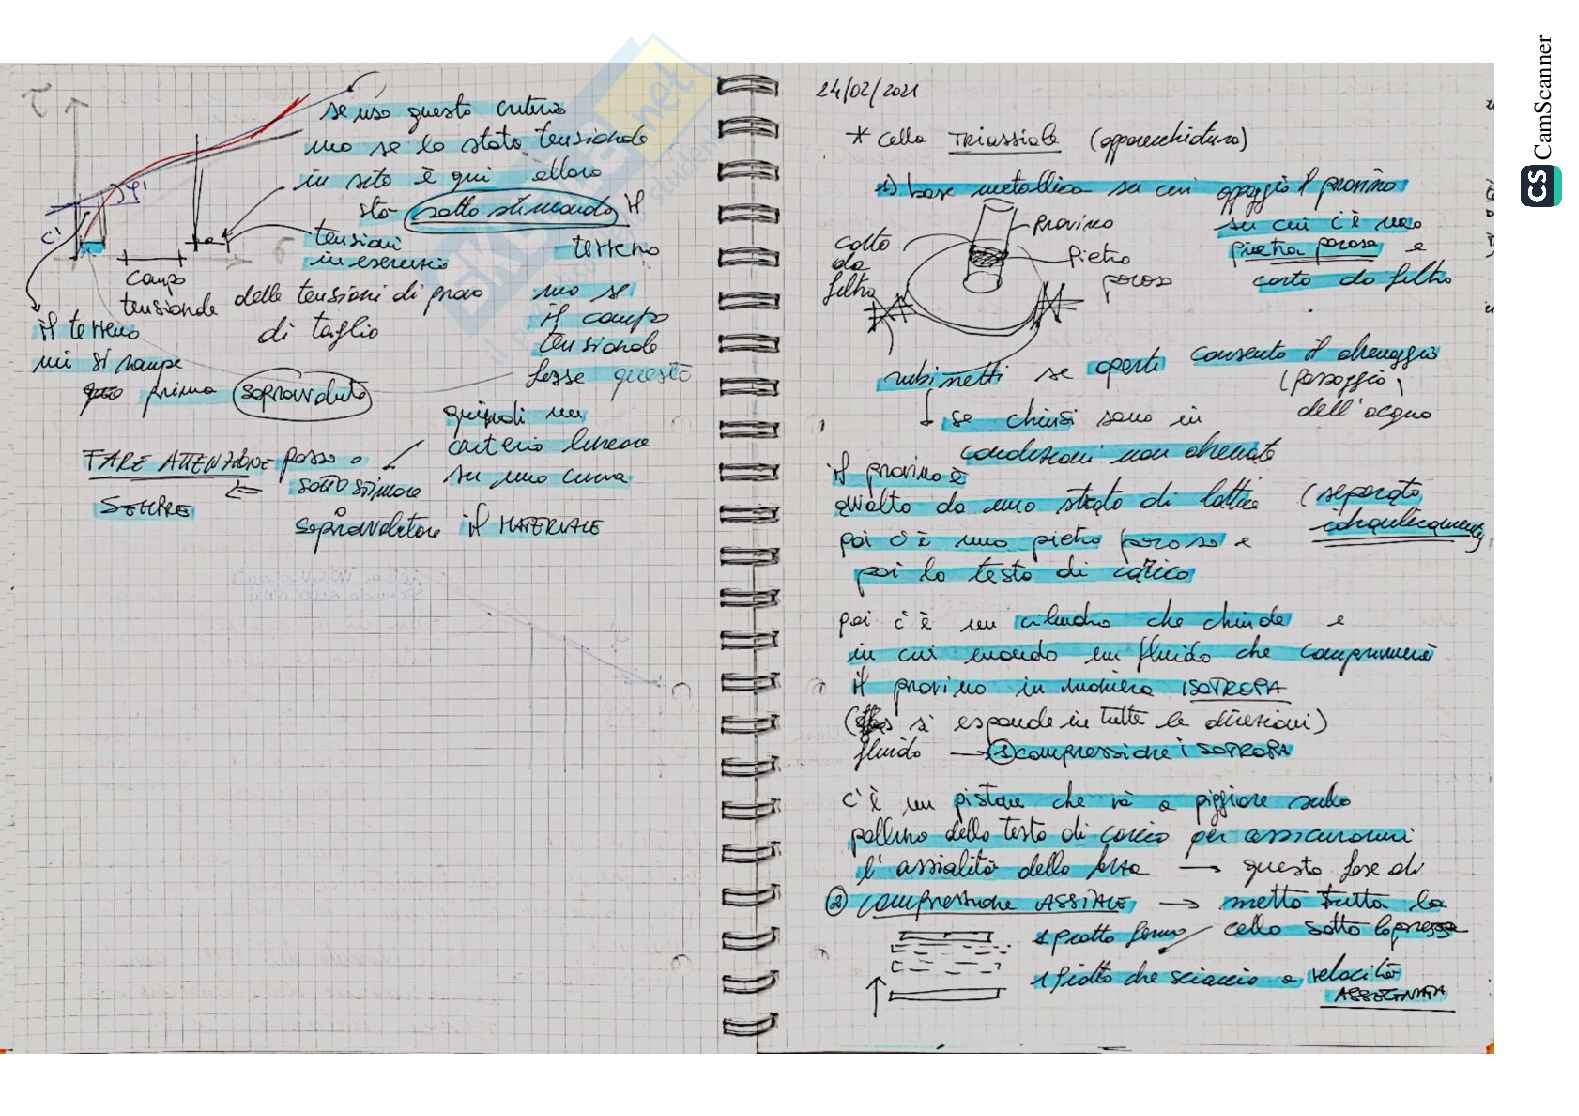 τ
se uso questo criterio
ma se lo stato tensionale
in sito è qui allora
sto sotto stimando il
terreno
φ'
c'
σ
tensioni
in esercizio
campo
tensionale delle tensioni di prova
di taglio
ma se
il campo
tensionale
fosse questo
il terreno
mi si rompe
prima sopravaluto
quindi un
criterio lineare
su una curva
FARE ATTENZIONE posso
SEMPRE
sotto stimare
o
sopravalutare il MATERIALE
24/02/2021
* Cella TRIASSIALE (apparecchiatura)
1) base metallica su cui appoggio il provino
su cui c'è una
pietra porosa e
carta da filtro
Provino
Pietra
porosa
carta
da
filtro
rubinetti se aperti consento il drenaggio
(passaggio)
dell'acqua
se chiusi sono in
condizioni non drenate
il provino è
avvolto da uno strato di lattice (separato
idraulicamente)
poi c'è una pietra porosa e
poi la testa di carico
poi c'è un cilindro che chiude e
in cui mando un fluido che comprimerà
il provino in maniera ISOTROPA
si espande in tutte le direzioni)
fluido → 1 compressione ISOTROPA
c'è un pistone che và a pigiare sulla
pallina della testa di carico per assicurarmi
l'assialità della forza → questa fase di
2 compressione ASSIALE → metto tutta la
cella sotto la pressa
1 piatto fermo
1 piatto che schiaccia a velocità
ASSEGNATA
CS CamScanner